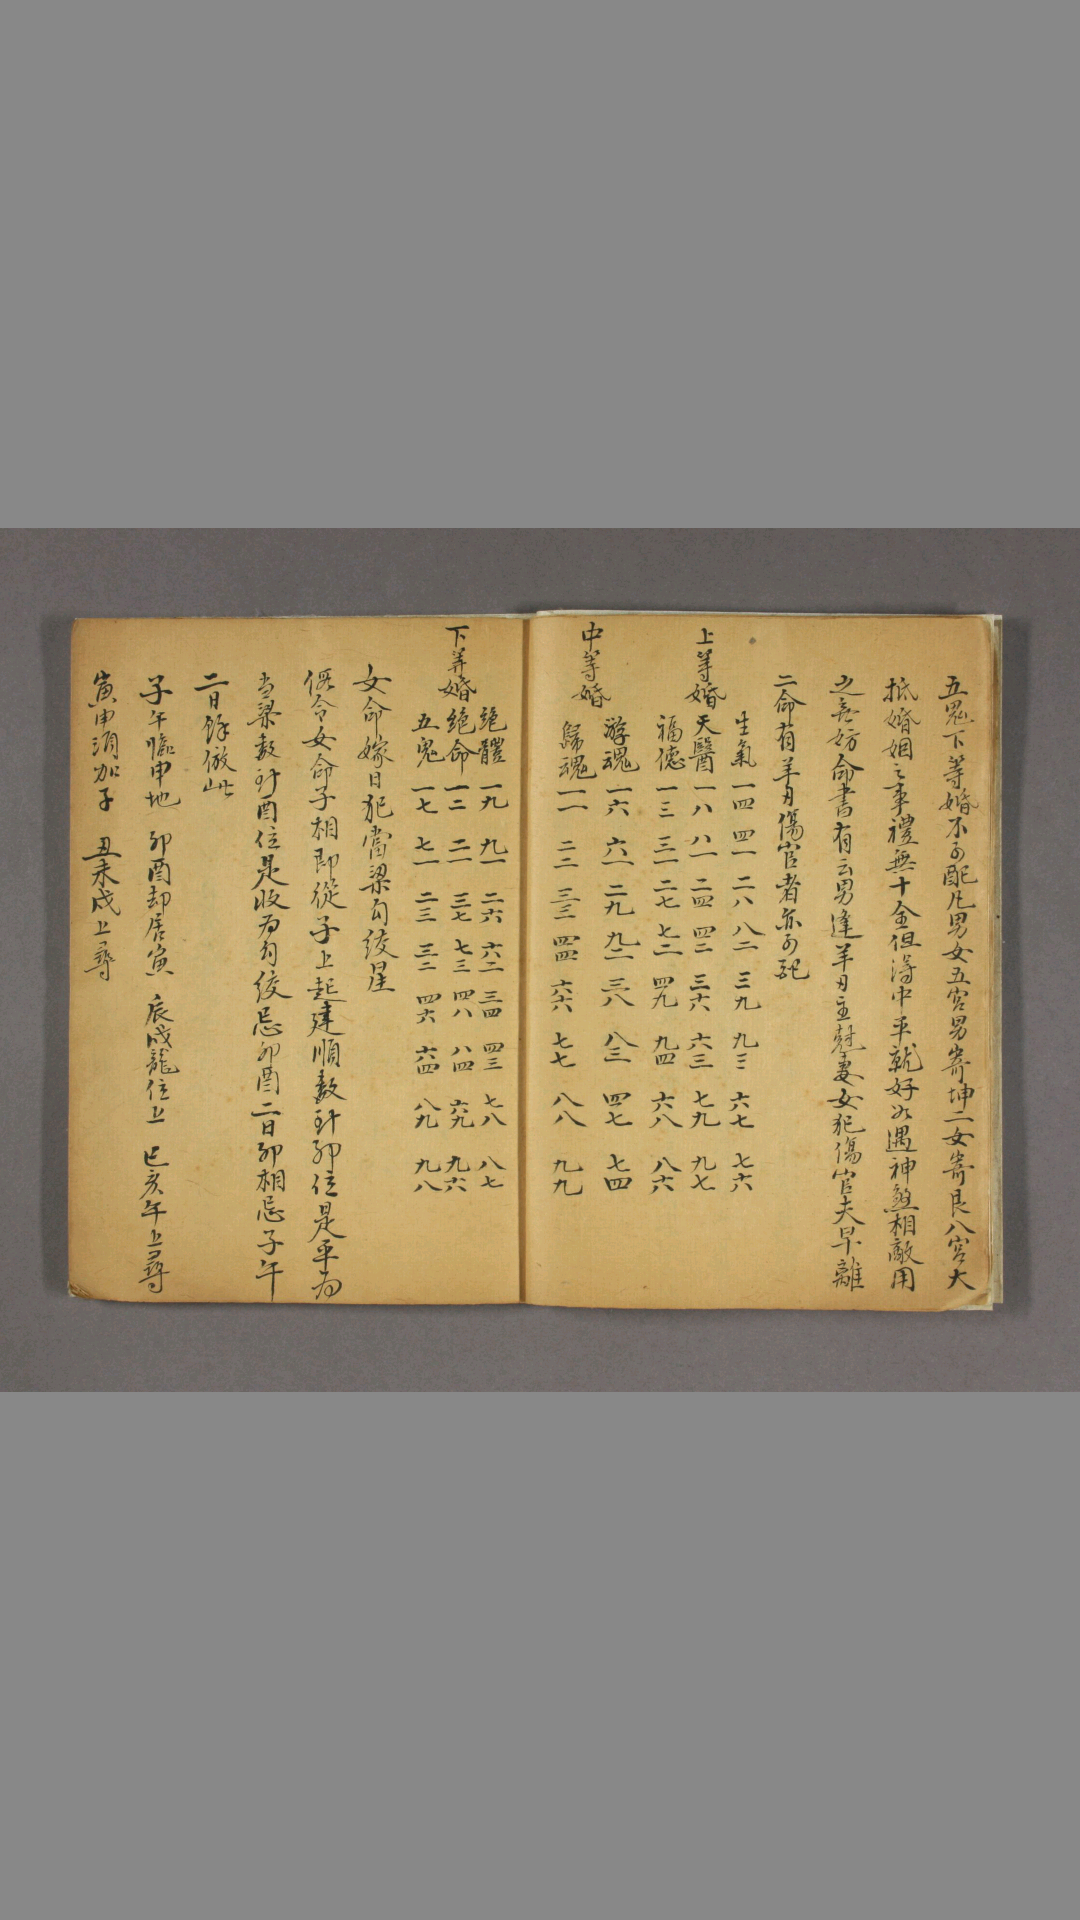 五鬼下等婚不可配凡男女五宮男寄坤二女寄艮八宮大
抵婚姻之事禮無十全但得中平就好如遇神煞相敵用
之無妨命書有云男逢羊刃主尅妻女犯傷官夫早離
二命有羊刃傷官者亦可配
上等婚
生氣 一四 四一 二八 八二 三九 九三 六七 七六
天醫 一八 八一 二四 四二 三六 六三 七九 九七
福德 一三 三一 二七 七二 四九 九四 六八 八六
中等婚
游魂 一六 六一 二九 九二 三八 八三 四七 七四
歸魂 一一 二二 三三 四四 六六 七七 八八 九九
下等婚
絶體 一九 九一 二六 六二 三四 四三 七八 八七
絕命 一二 二一 三七 七三 四八 八四 六九 九六
五鬼 一七 七一 二三 三二 四六 六四 八九 九八
女命嫁日犯當梁勾絞星
假令女命子相即從子上起建順數到卯位是平為
当梁數到酉位是收為勾絞忌卯酉二日卯相忌子午
二日餘倣此
子午臨申地 卯酉却居寅 辰戌龍位上 巳亥午上尋
寅申須加子 丑未戌上尋